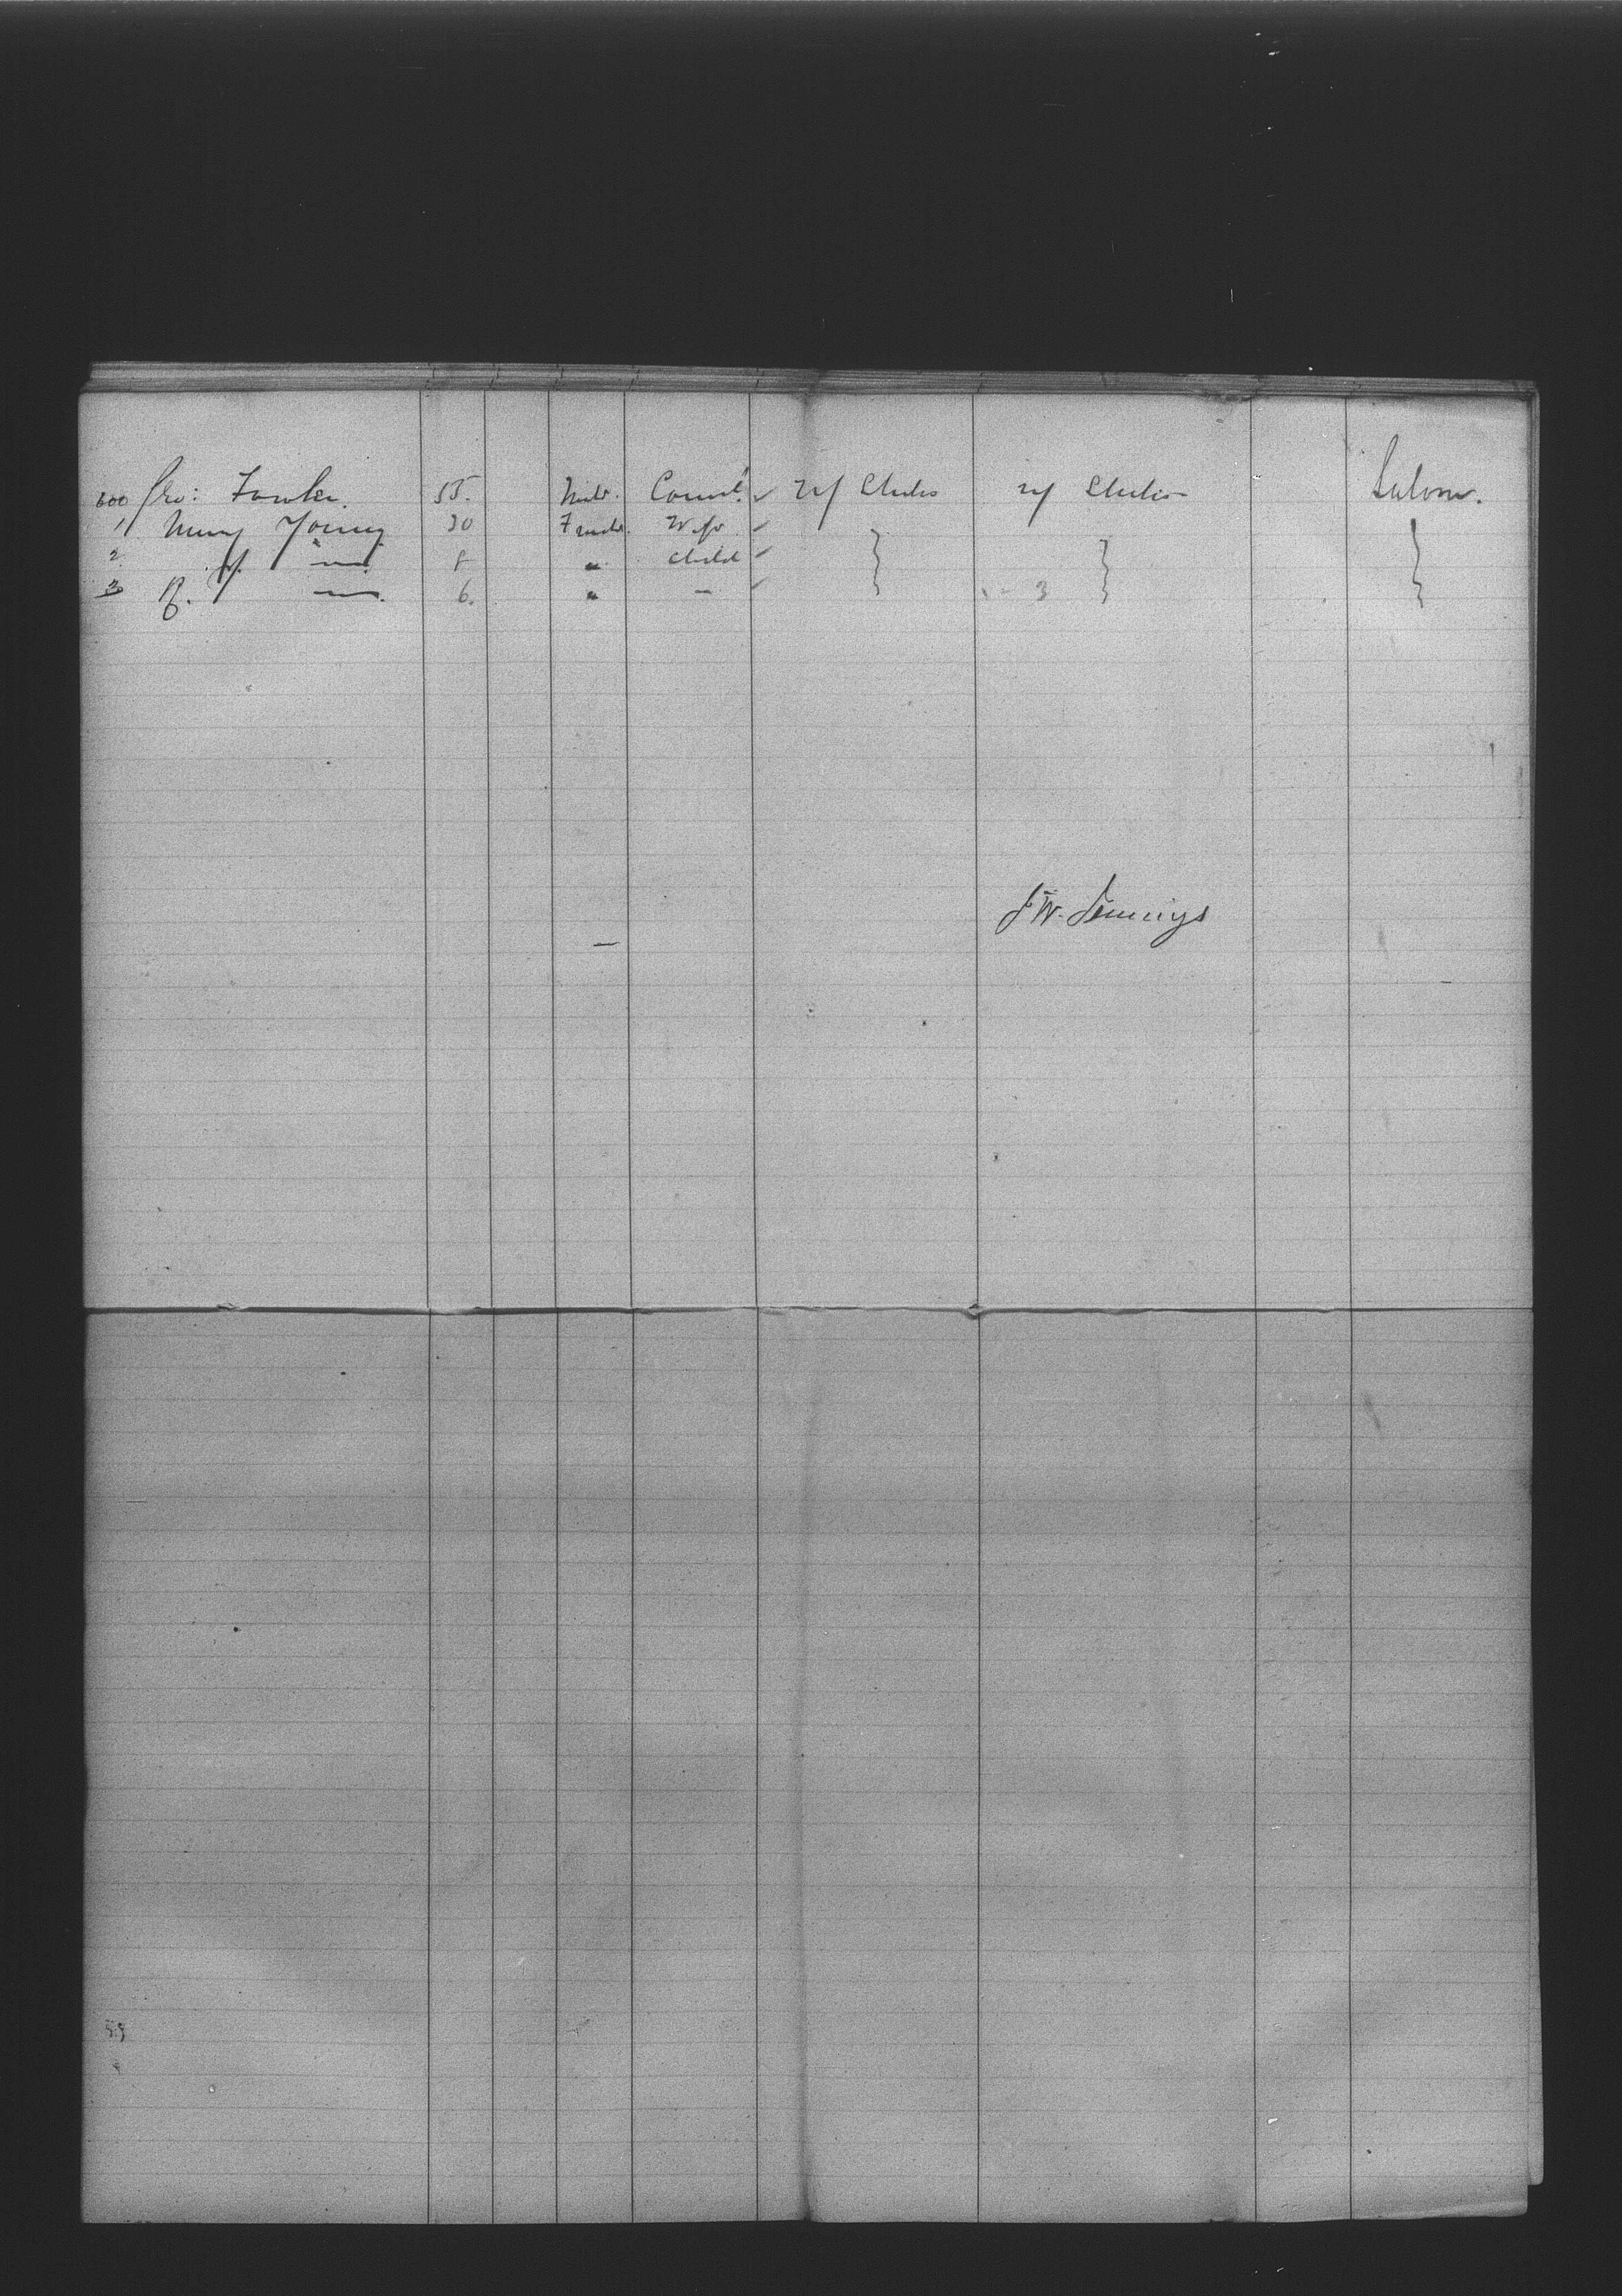 600 Geo: Fowler. 55. Male. Consul. ✓ U/ States U/ States Saloon.
1 Mary Young 30 Female. Wife ✓
2 Y. — 8 " Child ✓
3 B. — 6. " — ✓ 3
J W. Jennings